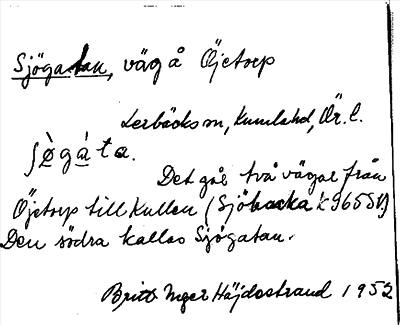 Sjögatan, väg å Öjetorp
Lerbäcks sn, Kumla hd, Ör. l.
ʃø̀gáta.
Det går två vägar från
Öjetorp till Kullen (Sjöbacka k 9655 D)
Den södra kallas Sjögatan.
Britt Inger Höjdestrand 1952